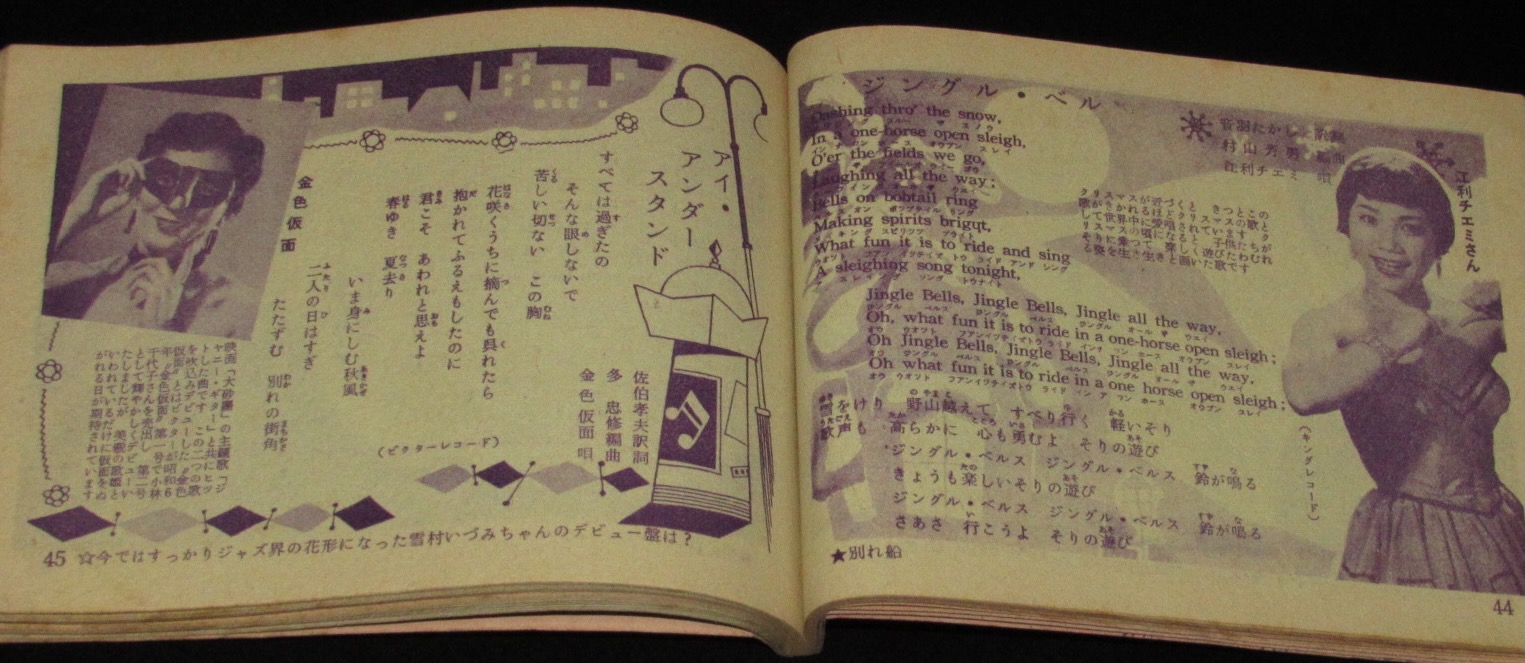 ジングル・ベル
音羽たかし 訳詞
村山芳男 編曲
江利チエミ 唄
江利チエミさん
Dashing thro' the snow,
In a one-horse open sleigh,
O'er the fields we go,
Laughing all the way;
Bells on bobtail ring
Making spirits brigqt,
What fun it is to ride and sing
A sleighing song tonight,
Jingle Bells, Jingle Bells, Jingle all the way,
Oh, what fun it is to ride in a one-horse open sleigh;
Oh Jingle Bells, Jingle Bells, Jingle all the way,
Oh what fun it is to ride in a one horse open sleigh;
雪をけり 野山越えて すべり行く 軽いそり
歌声も 高らかに 心も勇むよ そりの遊び
ジングル・ベルス ジングル・ベルス 鈴が鳴る
きょうも楽しいそりの遊び
ジングル・ベルス ジングル・ベルス 鈴が鳴る
さあさ 行こうよ そりの遊び
(キングレコード)
★別れ船
44
アイ・
アンダー
スタンド
佐伯孝夫訳詞
多 忠修編曲
金色仮面唄
すべては過ぎたの
そんな眼しないで
苦しい切ない この胸
花咲くうちに摘んでも呉れたら
抱かれてふるえもしたのに
君こそ あわれと思えよ
春ゆき 夏去り
いま身にしむ秋風
二人の日はすぎ
たたずむ 別れの街角
(ビクターレコード)
金色仮面
映画「大砂塵」の主題歌「ジ
ャニー・ギター」と共にヒッ
トした曲です この二つの歌
を吹込みデビューした〝金色
仮面〟とはビクターが昭和6
年〝金色仮面〟第一号で小林
千代子さんを売出し 第二号
として輝やかしくデビューい
たしましたが 美貌の歌姫と
いわれているだけに仮面をぬ
がれる日が期待されています
45 ☆今ではすっかりジャズ界の花形になった雪村いづみちゃんのデビュー盤は?